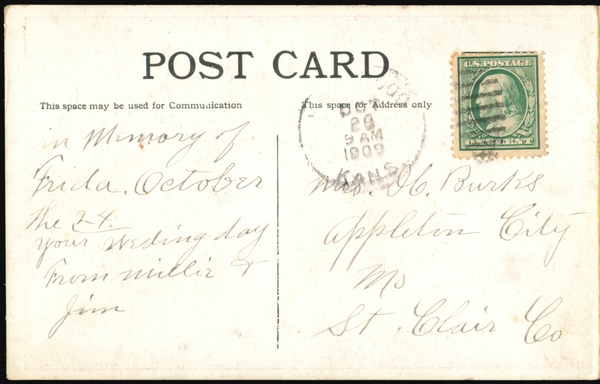 POST CARD
This space may be used for Communication
This space for Address only
U.S. POSTAGE
OCT
29
9 AM
1909
KANS.
in Memory of
Frida. October
the 24.
your Weding day
From millie &
Jim
Mrs. O C. Burks
Appleton City
Mo
St. Clair Co